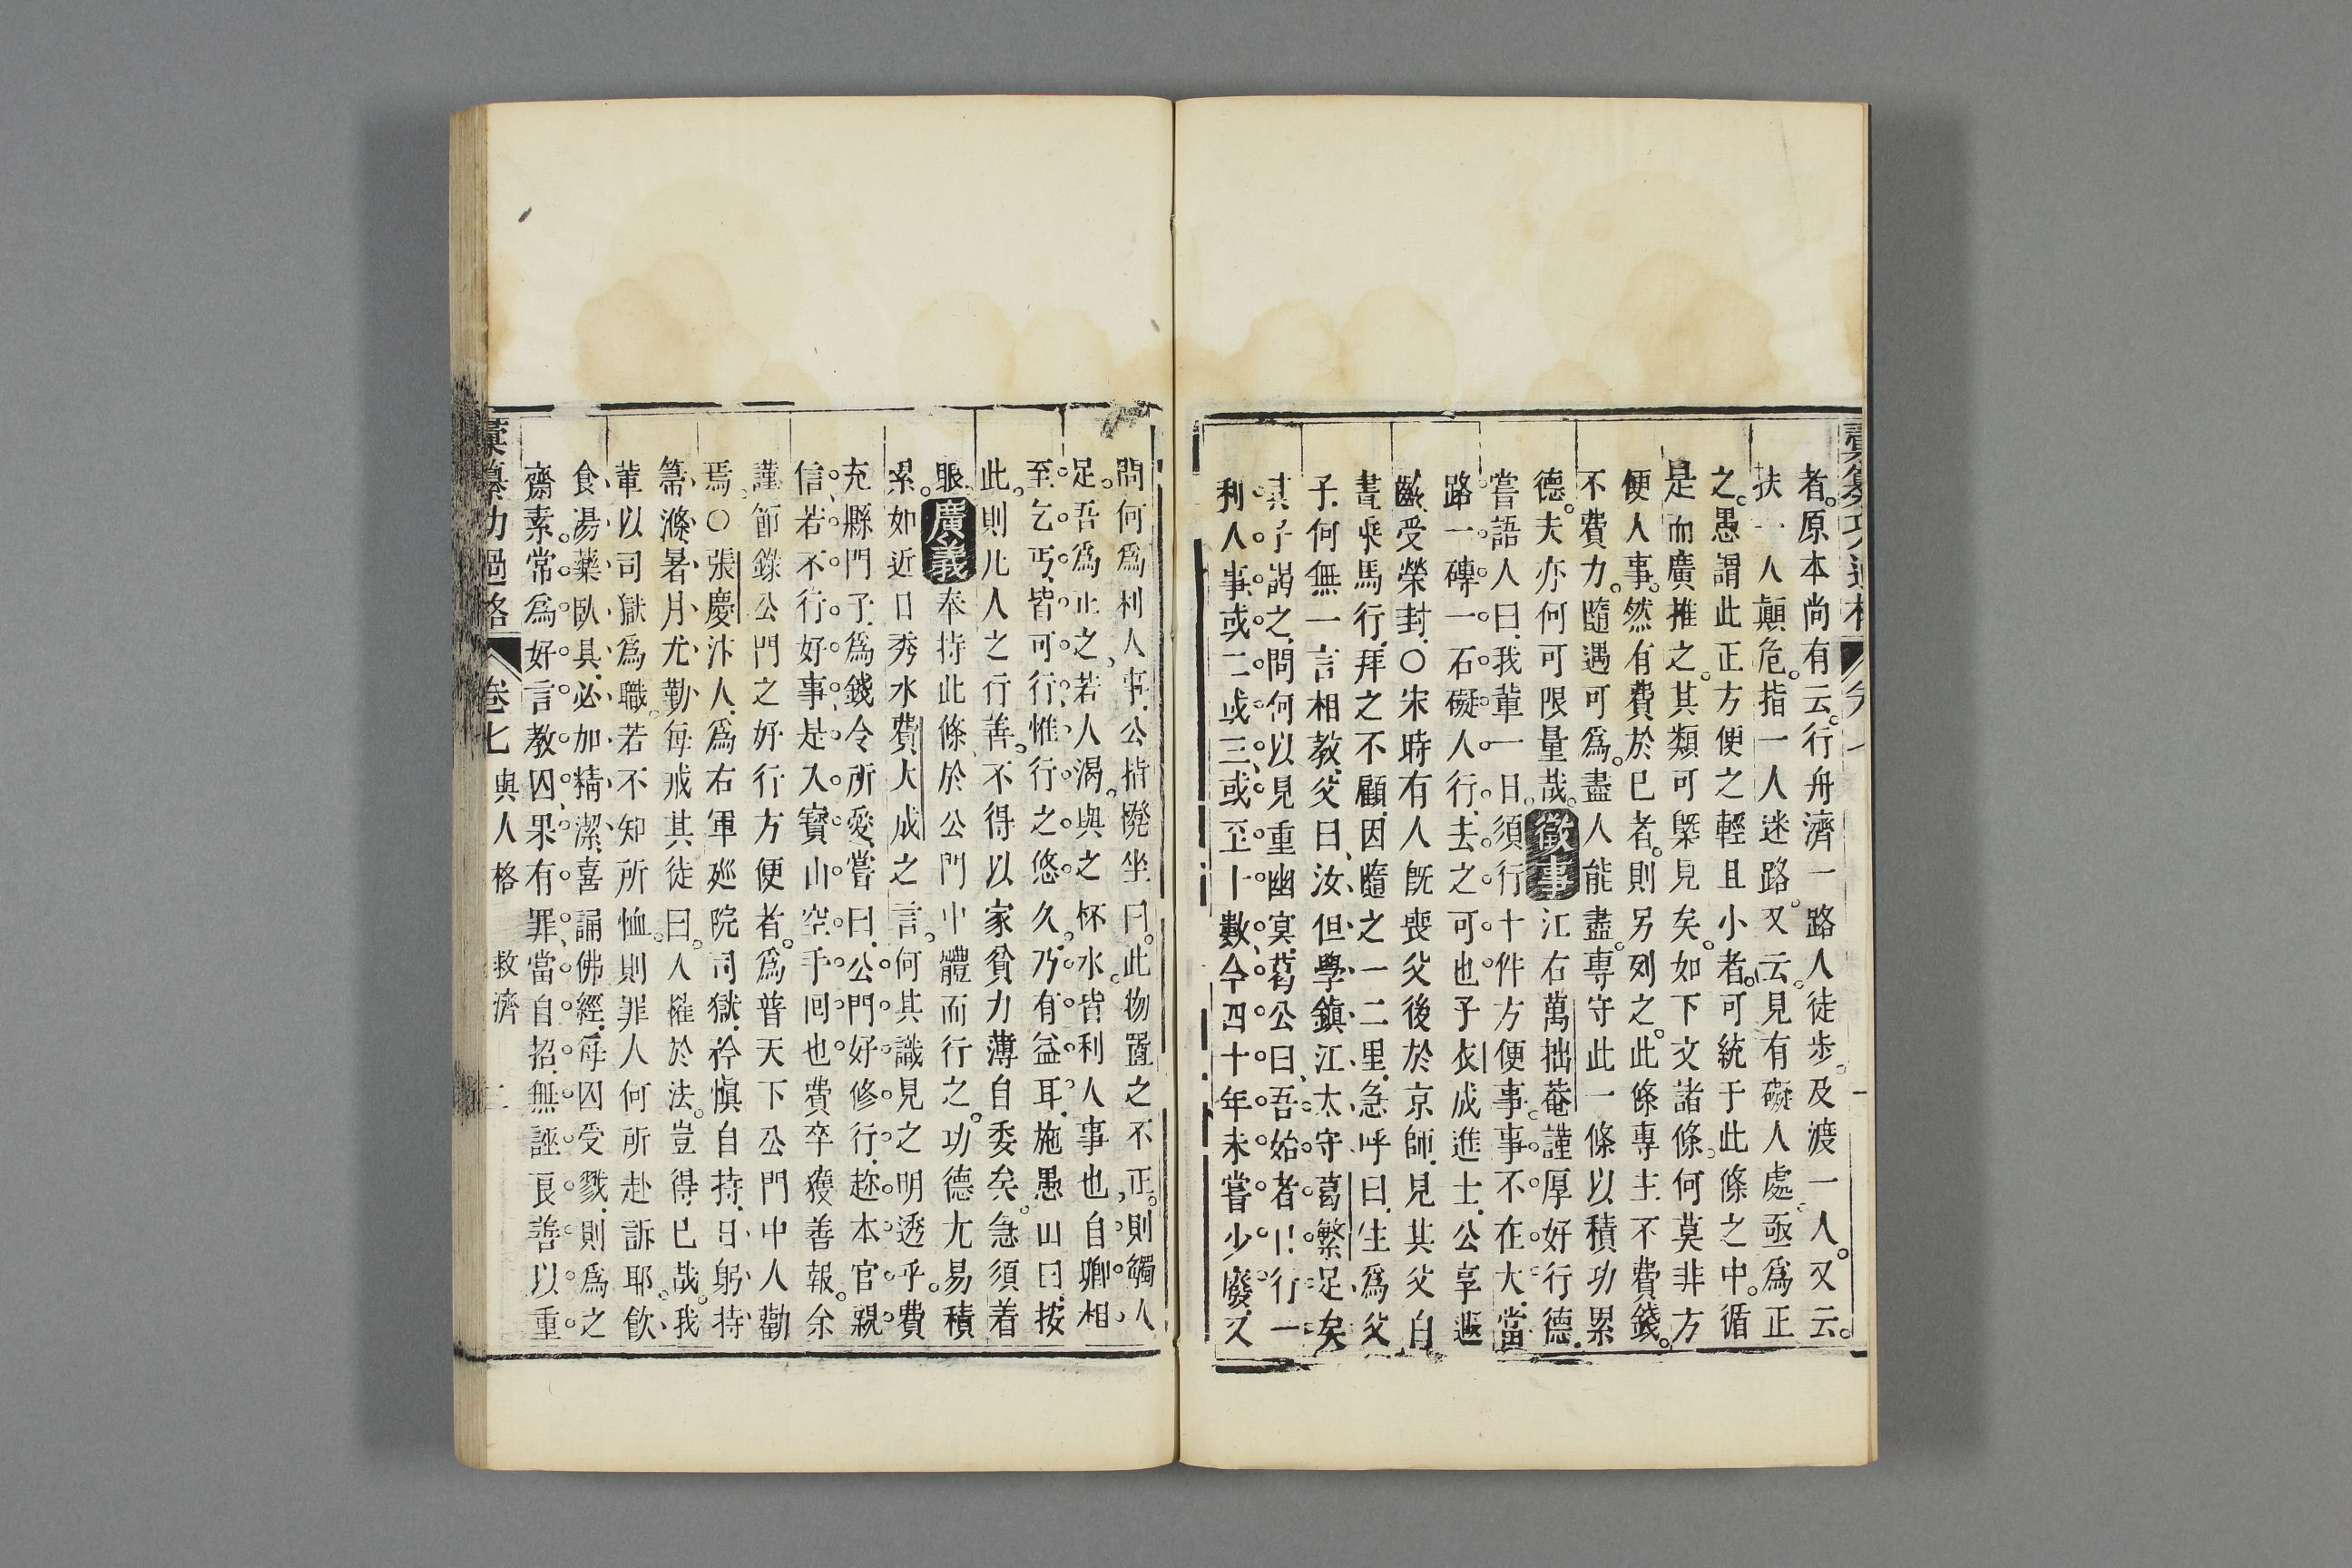 者。原本尚有云。行舟濟一路人徒步。及渡一人。又云。
扶一人顛危。指一人迷路。又云。見有礙人處。亟爲正
之。愚謂此正方便之輕且小者。可統于此條之中。循
是而廣推之。其類可槩見矣。如下文諸條。何莫非方
便人事。然有費於已者。則另列之。此條專主不費錢。
不費力。隨遇可爲。盡人能盡。專守此一條以積功累
德。夫亦何可限量哉。徵事江右萬拙菴謹厚好行德。
嘗語人曰。我輩一日。須行十件方便事。事不在大。當
路一磚一石礙人行。去之可也。予衣成進士。公享遐
齡受榮封。○宋時有人旣喪父後於京師。見其父白
晝乘馬行。拜之不顧。因隨之一二里。急呼曰。生爲父
子。何無一言相教。父曰。汝但學鎮江太守葛繁足矣
其子謁之。問何以見重幽冥。葛公曰。吾始者日行一
利人事。或二或三。或至十數。今四十年未嘗少廢。又
問何爲利人事。公指櫈坐曰。此物置之不正。則觸人
足。吾爲正之。若人渴。與之杯水。皆利人事也。自卿相
至乞丐。皆可行。惟行之悠久。乃有益耳。施愚山曰。按
此。則凡人之行善。不得以家貧力薄自委矣。急須着
眼。廣義奉持此條。於公門中體而行之。功德尤易積
累。如近日秀水費大成之言。何其識見之明透乎。費
充縣門子。爲錢令所愛。嘗曰。公門好修行。趂本官親
信。若不行好事。是入寶山空手囘也。費卒獲善報。余
謹節錄公門之好行方便者。爲普天下公門中人勸
焉。○張慶汴人。爲右軍廵院司獄。矜愼自持。日躬持
箒滌。暑月尤勤。每戒其徒曰。人罹於法。豈得已哉。我
輩以司獄爲職。若不知所恤。則罪人何所赴訴耶。飮
食湯藥臥具。必加精潔。喜誦佛經。每囚受戮。則爲之
齋素。常爲好言教囚。果有罪。當自招。無誣良善。以重
彙纂功過格 卷七 與人格 救濟 二